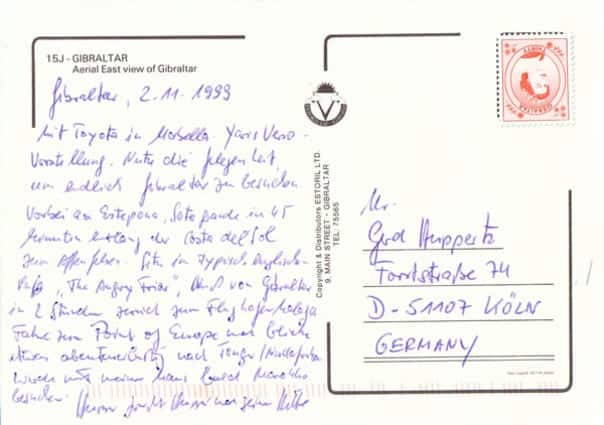 15J - GIBRALTAR
Aerial East view of Gibraltar
Gibraltar, 2.11.1999
Mit Toyota in Marbella. Yaris Verso-
Vorstellung. Nutze die Gelegenheit,
um endlich Gibraltar zu besuchen
Vorbei an Estepona, Sotogrande in 45
Minuten entlang der Costa del Sol
zum Affenfelsen. Sitze in typisch englisch-
"The Angry Friar", muß von Gibraltar
in 2 Stunden zurück zum Flughafen Malaga
Fahre zum Point of Europe und blicke
etwas abenteuerlustig nach
würde mit meiner Maus
besuchen.
Copyright & Distributors ESTORIL LTD.
9, MAIN STREET - GIBRALTAR
TEL: 75565
Mr.
Gerd Huppertz
Forststraße 74
D-51107 KÖLN
GERMANY